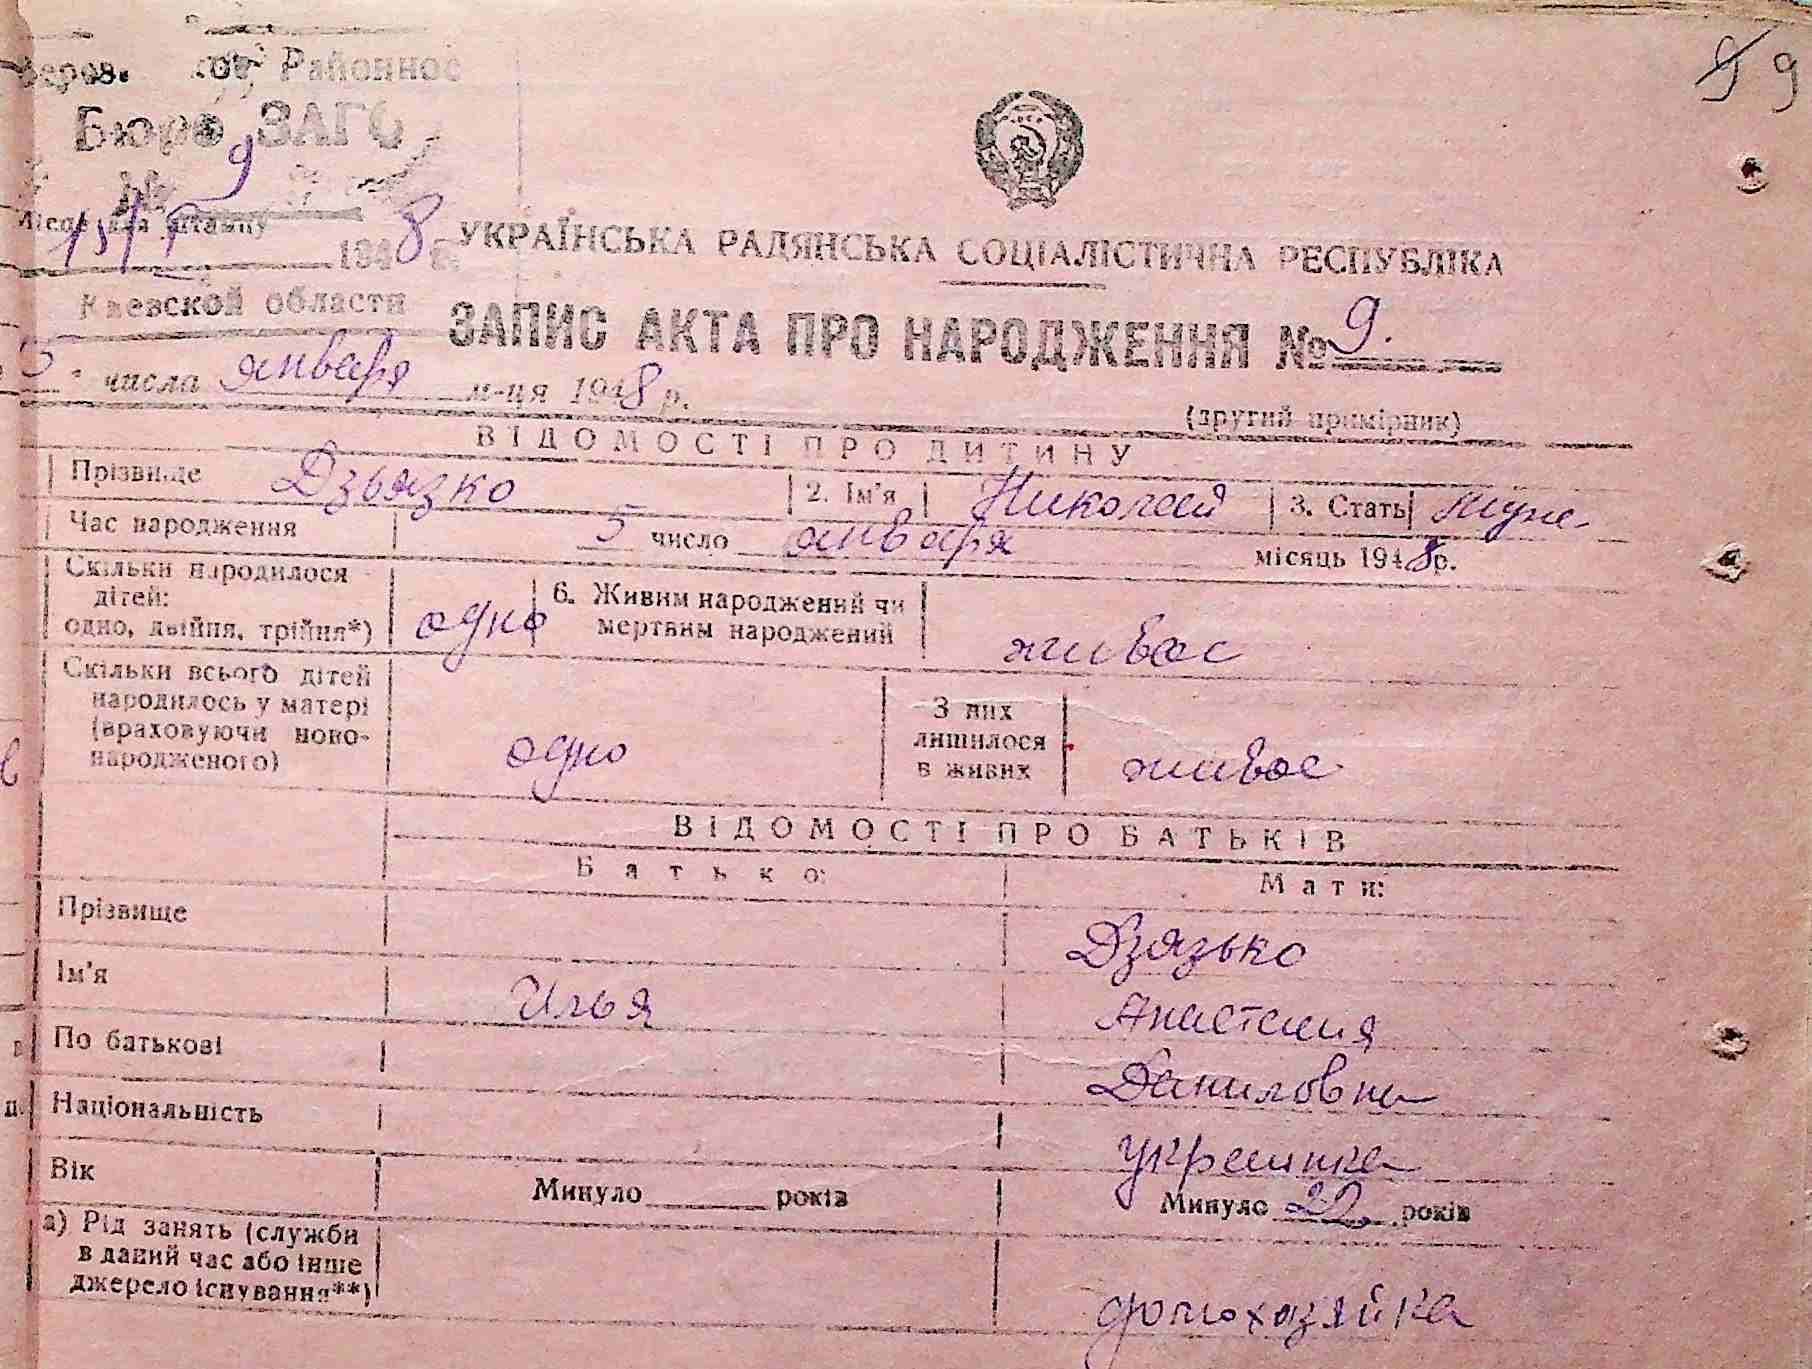 9 9
Районное
Бюро ЗАГС
№ 9
Місце для штампу
15/I 1948 г.
Киевской области
УКРАЇНСЬКА РАДЯНСЬКА СОЦІАЛІСТИЧНА РЕСПУБЛІКА
ЗАПИС АКТА ПРО НАРОДЖЕННЯ № 9.
5 " числа января м-ця 1948 р.
(другий примірник)
ВІДОМОСТІ ПРО ДИТИНУ
Прізвище Дзьязко 2. Ім'я Николай 3. Стать муж.
Час народження 5 число января місяць 1948 р.
Скільки народилося дітей: одно, двійня, трійня*) одно 6. Живим народжений чи мертвим народжений живое
Скільки всього дітей народилось у матері (враховуючи ново-народженого) одно З них лишилося в живих живое
ВІДОМОСТІ ПРО БАТЬКІВ
Батько: Мати:
Прізвище Дзязько
Ім'я Илья Анастасия
По батькові Даниловна
Національність украинка
Вік Минуло років Минуло 22 років
а) Рід занять (служби в даний час або інше джерело існування**) домохазяйка